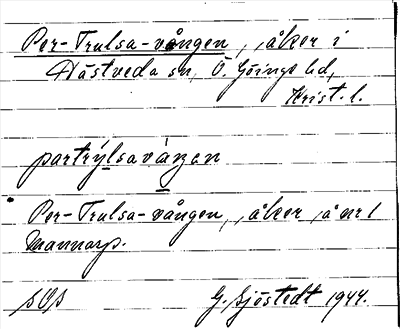 Per-Trulsa-vången, åker i
Hästveda sn, Ö. Göinge hd,
Krist. l.
partrýlsavàŋen
Per-Trulsa-vången, åker å nr 1
Mannarp.
G. Sjöstedt 1944.